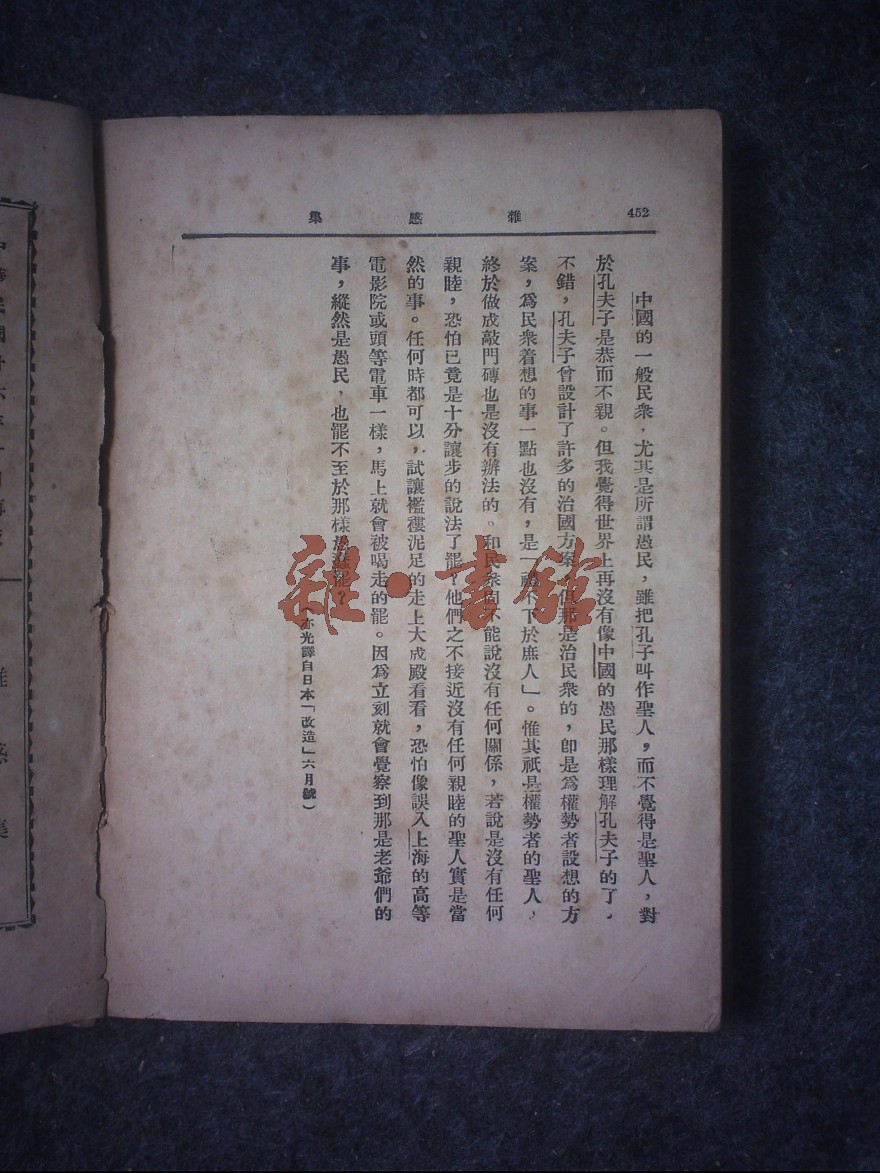 452
雜感集
中國的一般民衆,尤其是所謂愚民,雖把孔子叫作聖人,而不覺得是聖人,對
於孔夫子是恭而不親。但我覺得世界上再沒有像中國的愚民那樣理解孔夫子的了。
不錯,孔夫子曾設計了許多的治國方案,但那是治民衆的,卽是爲權勢者設想的方
案,爲民衆着想的事一點也沒有,是「禮不下於庶人」。惟其祇是權勢者的聖人,
終於做成敲門磚也是沒有辦法的。和民衆固不能說沒有任何關係,若說是沒有任何
親睦,恐怕已竟是十分讓步的說法了罷?他們之不接近沒有任何親睦的聖人實是當
然的事。任何時都可以,試讓襤褸泥足的走上大成殿看看,恐怕像誤入上海的高等
電影院或頭等電車一樣,馬上就會被喝走的罷。因爲立刻就會覺察到那是老爺們的
事,縱然是愚民,也罷不至於那樣愚蠢罷?
(亦光譯自日本「改造」六月號)
雜·書館
雜感集